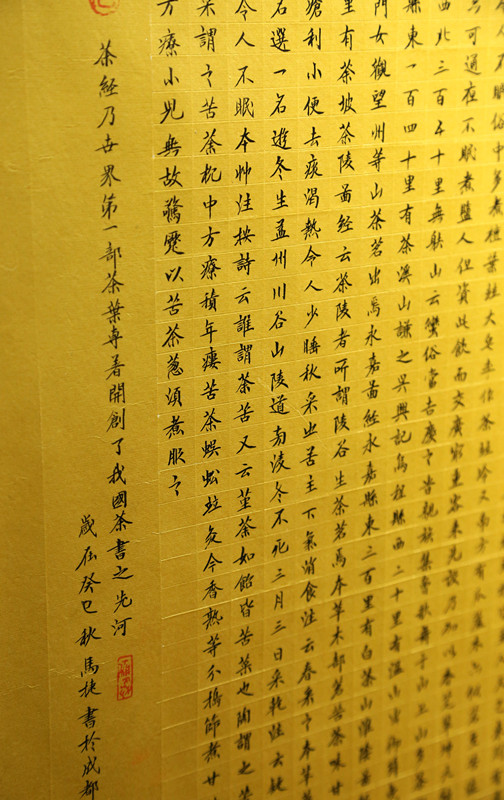 可通夜不眠煮鹽人但資此飲而交廣最重客來先設乃加以香芼輩坤元錄
西北三百五十里無射山云蠻俗當吉慶之時親族集會歌舞于山上山多茶
縣東一百四十里有茶溪山謙之吳興記烏程縣西二十里有溫山出御荈
門女觀望州等山茶茗出焉永嘉啚經永嘉縣東三百里有白茶山淮陰
里有茶坡茶陵啚經云茶陵者所謂陵谷生茶茗焉本草木部茗苦茶味甘
瘡利小便去痰渴熱令人少睡秋采之苦主下氣消食注云春采之本草
名選一名遊冬生益州川谷山陵道旁淩冬不死三月三日采乾注云
令人不眠本艸注按詩云誰謂荼苦又云堇荼如飴皆苦菜也陶謂之苦
采謂之苦茶枕中方療積年瘻苦茶蜈蚣竝炙令香熟等分搗篩煮甘
方療小兒無故驚蹷以苦茶蔥須煮服之
茶經乃世界第一部茶葉專著開創了我國茶書之先河
歲在癸巳秋馬捷書於成都